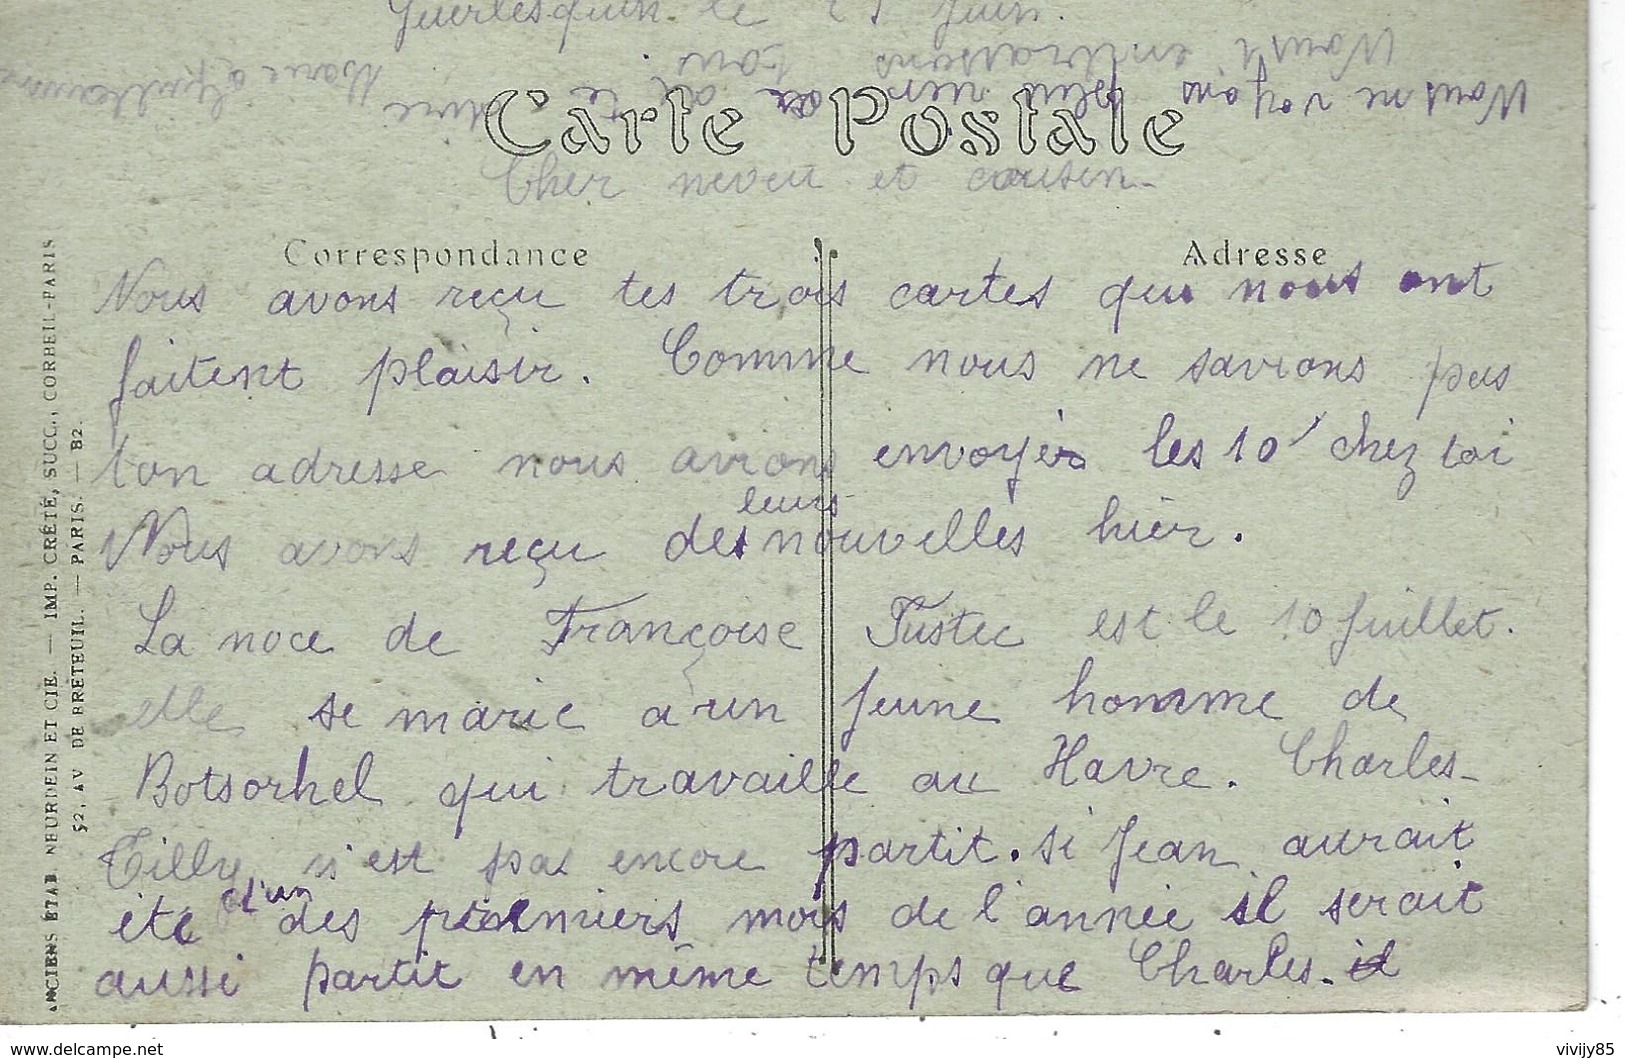 Guerlesquin le 21 Juin.
Nous t'embrassons tous
Nous ne voyons plus rien a te dire
Carte Postale
Cher neveu et cousin-
Correspondance
Adresse
Nous avons reçu tes trois cartes qui nous ont
faitent plaisir. Comme nous ne savions pas
ton adresse nous avions envoyés les 10 chez toi
leurs
Nous avons reçu des nouvelles hier.
La noce de Françoise Tustec est le 10 Juillet.
elle se marie à un jeune homme de
Botsorhel qui travaille au Havre. Charles-
Tilly n'est pas encore partit. si Jean aurait
été d'un des premiers mois de l'année il serait
aussi partit en même temps que Charles. il
ANCIENS ETAB. NEURDEIN ET CIE. — IMP. CRÉTÉ, SUCC., CORBEIL-PARIS
52, AV DE BRETEUIL. — PARIS. — B2.
www.delcampe.net
vivijy85